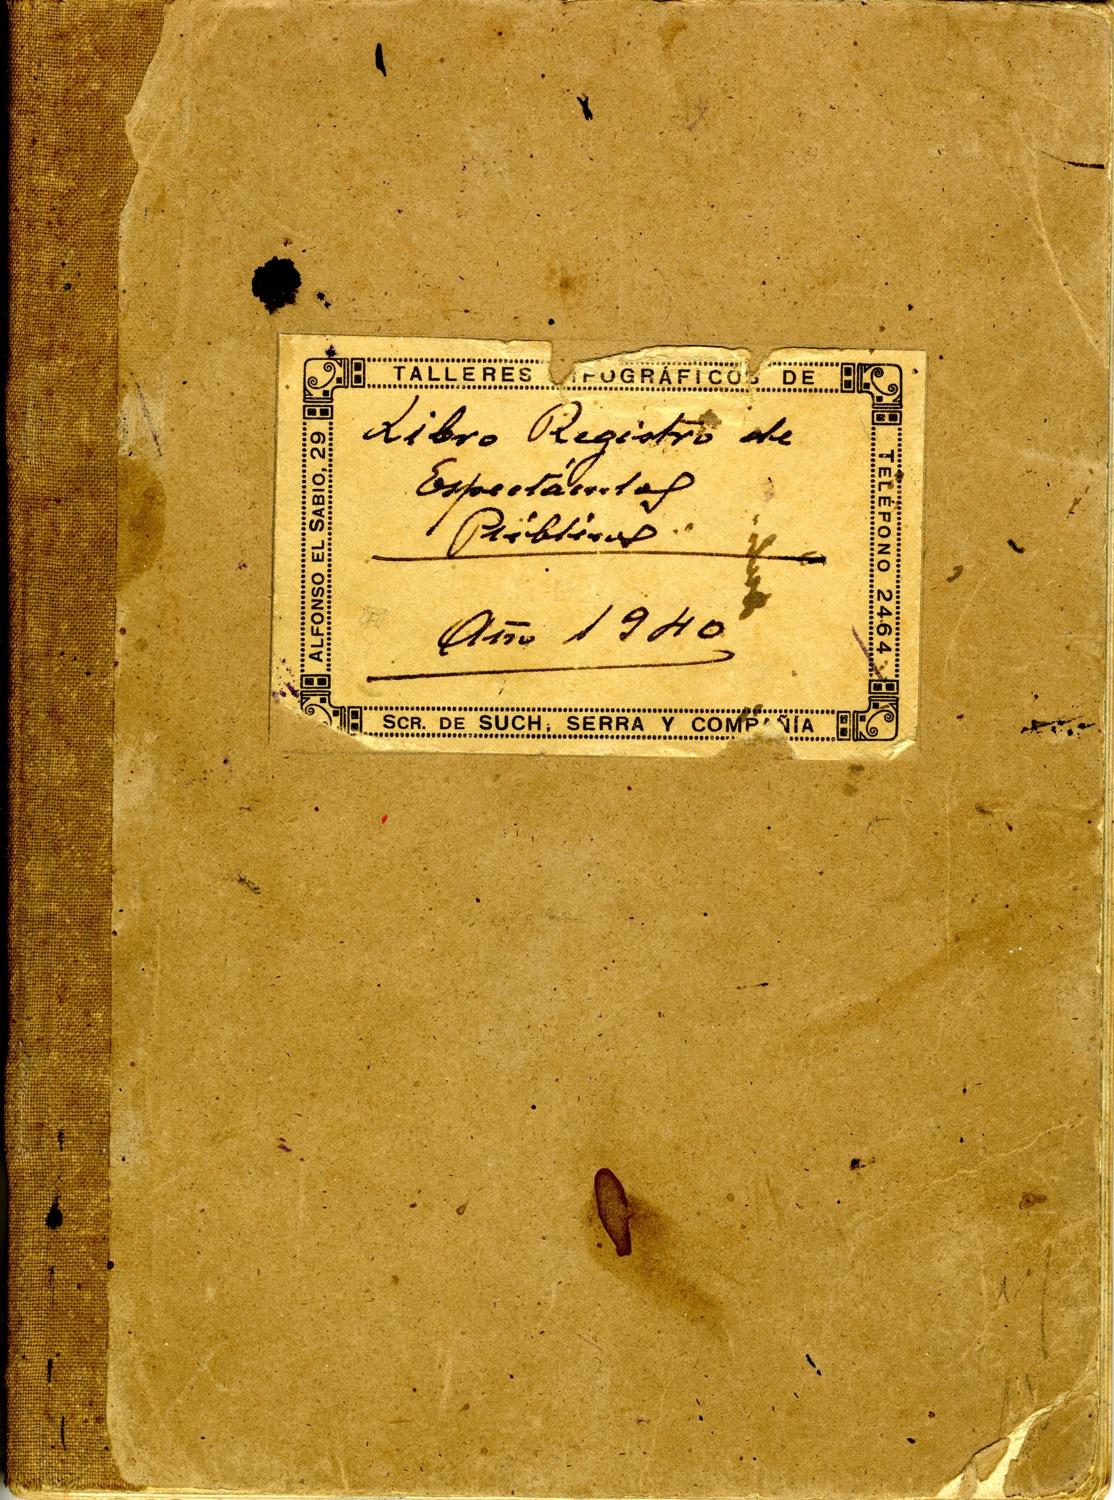 TALLERES TIPOGRÁFICOS DE
ALFONSO EL SABIO, 29
Libro Registro de
Espectáculos
Públicos
Año 1940
TELÉFONO 2464
SCR. DE SUCH, SERRA Y COMPAÑÍA